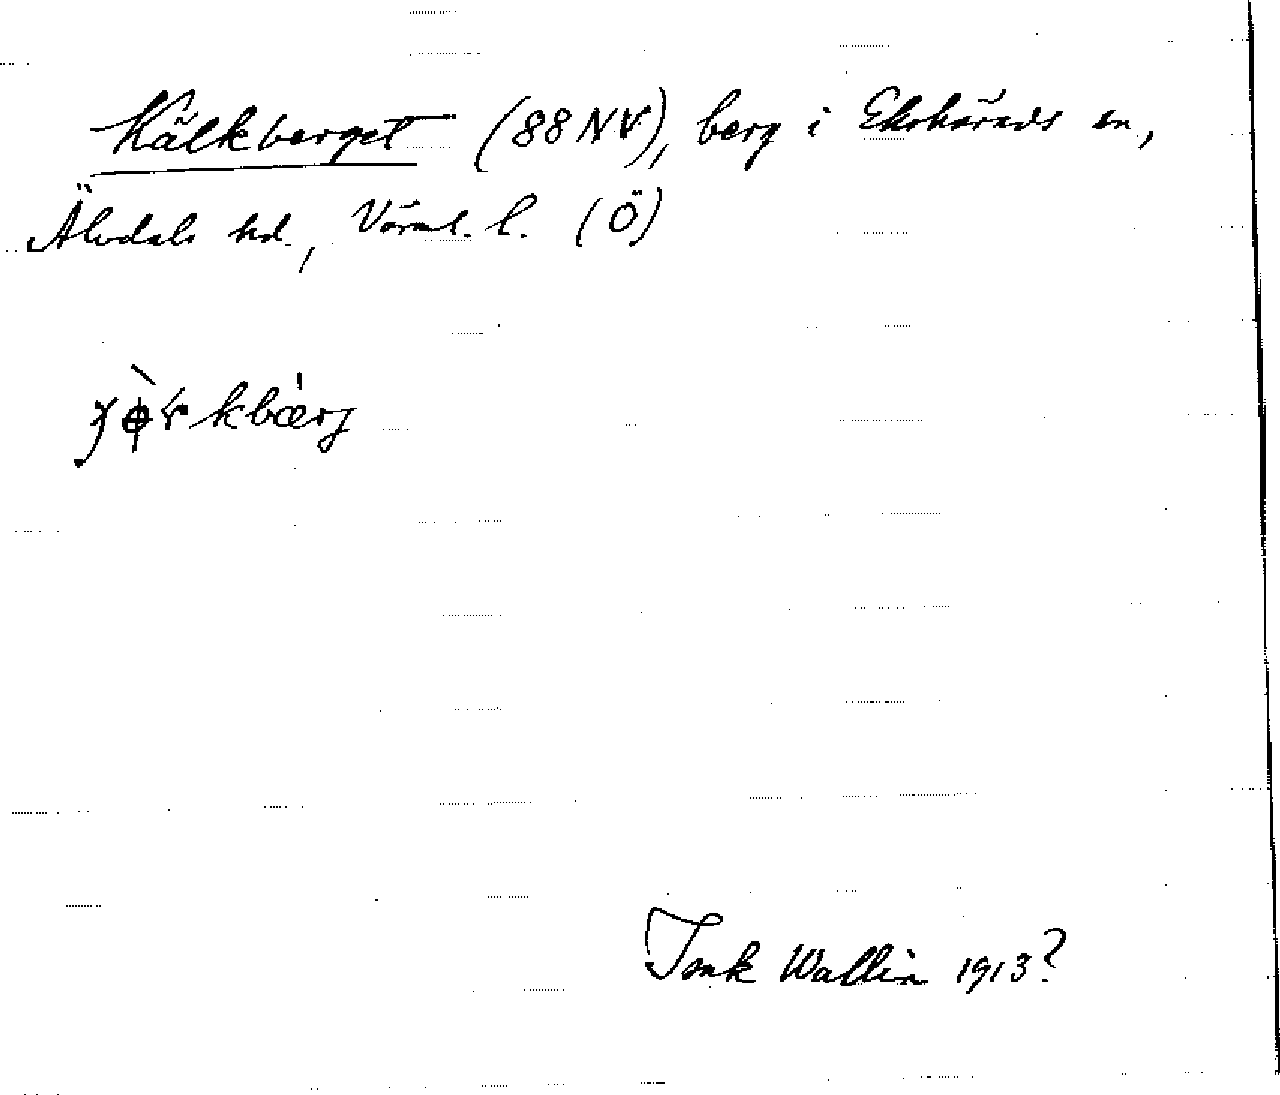 Kälkberget (88 NV), berg i Ekshärads sn,
Älvdals hd., Värml. l. (Ö)
kbærj
Wallin 1913?